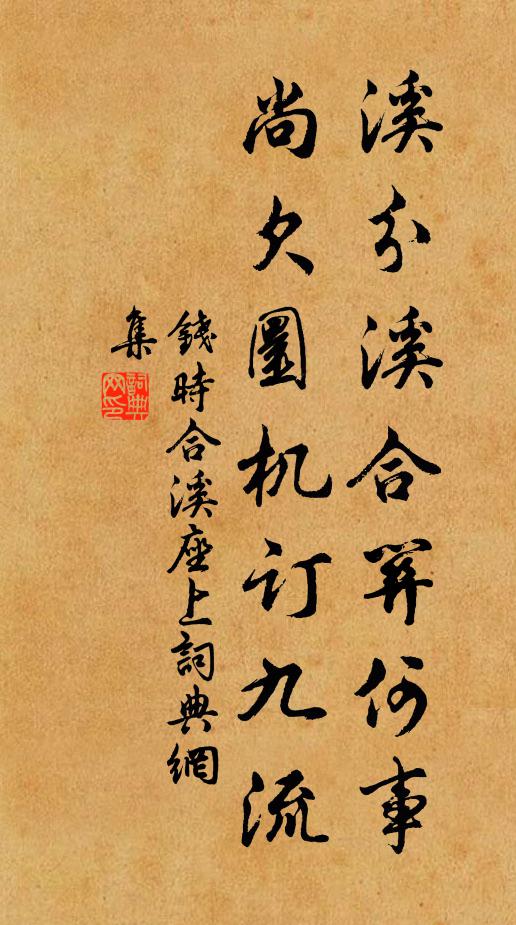 溪分溪合關何事
尚欠圖机訂九流
錢時合溪座上詞典網
集
詞典網印